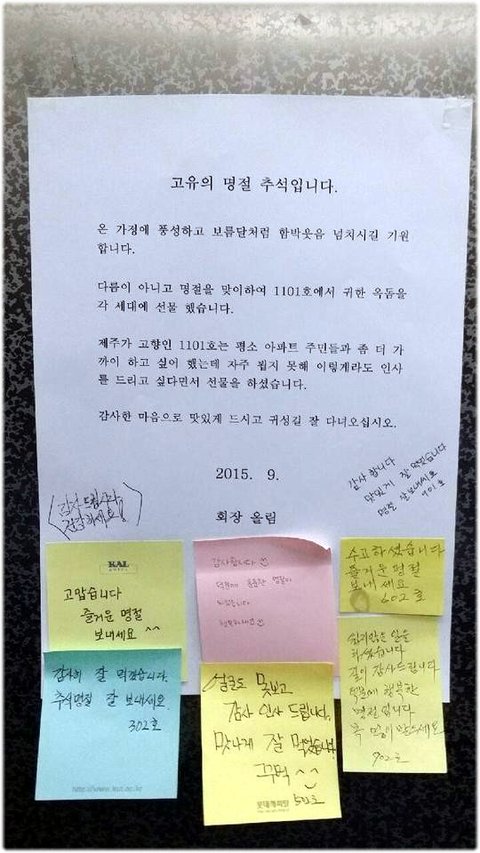 고유의 명절 추석입니다.
온 가정에 풍성하고 보름달처럼 함박웃음 넘치시길 기원
합니다.
다름이 아니고 명절을 맞이하여 1101호에서 귀한 옥돔을
각 세대에 선물 했습니다.
제주가 고향인 1101호는 평소 아파트 주민들과 좀 더 가
까이 하고 싶어 했는데 자주 뵙지 못해 이렇게라도 인사
를 드리고 싶다면서 선물을 하셨습니다.
감사한 마음으로 맛있게 드시고 귀성길 잘 다녀오십시오.
2015. 9.
회장 올림
감사드립니다
건강하세요
감사합니다
맛있게 잘 먹겠습니다
명절 잘보내시오
901호
KAL
고맙습니다
즐거운 명절
보내세요 ^^
감사합니다
덕분에 풍성한 명절이
되겠습니다
행복하세요
수고하셨습니다
즐거운 명절
보내세요
602호
감사히 잘 먹겠습니다.
추석명절 잘 보내세요.
302호
http://www.kua.ac.kr
얼굴도 못보고
감사 인사 드립니다.
맛나게 잘 먹었습니다
꾸벅 ^^
502호
롯데캐피탈
쉽지않은 일을
하셨습니다
깊이 감사드립니다
덕분에 행복한
명절입니다
복 많이 받으세요
902호